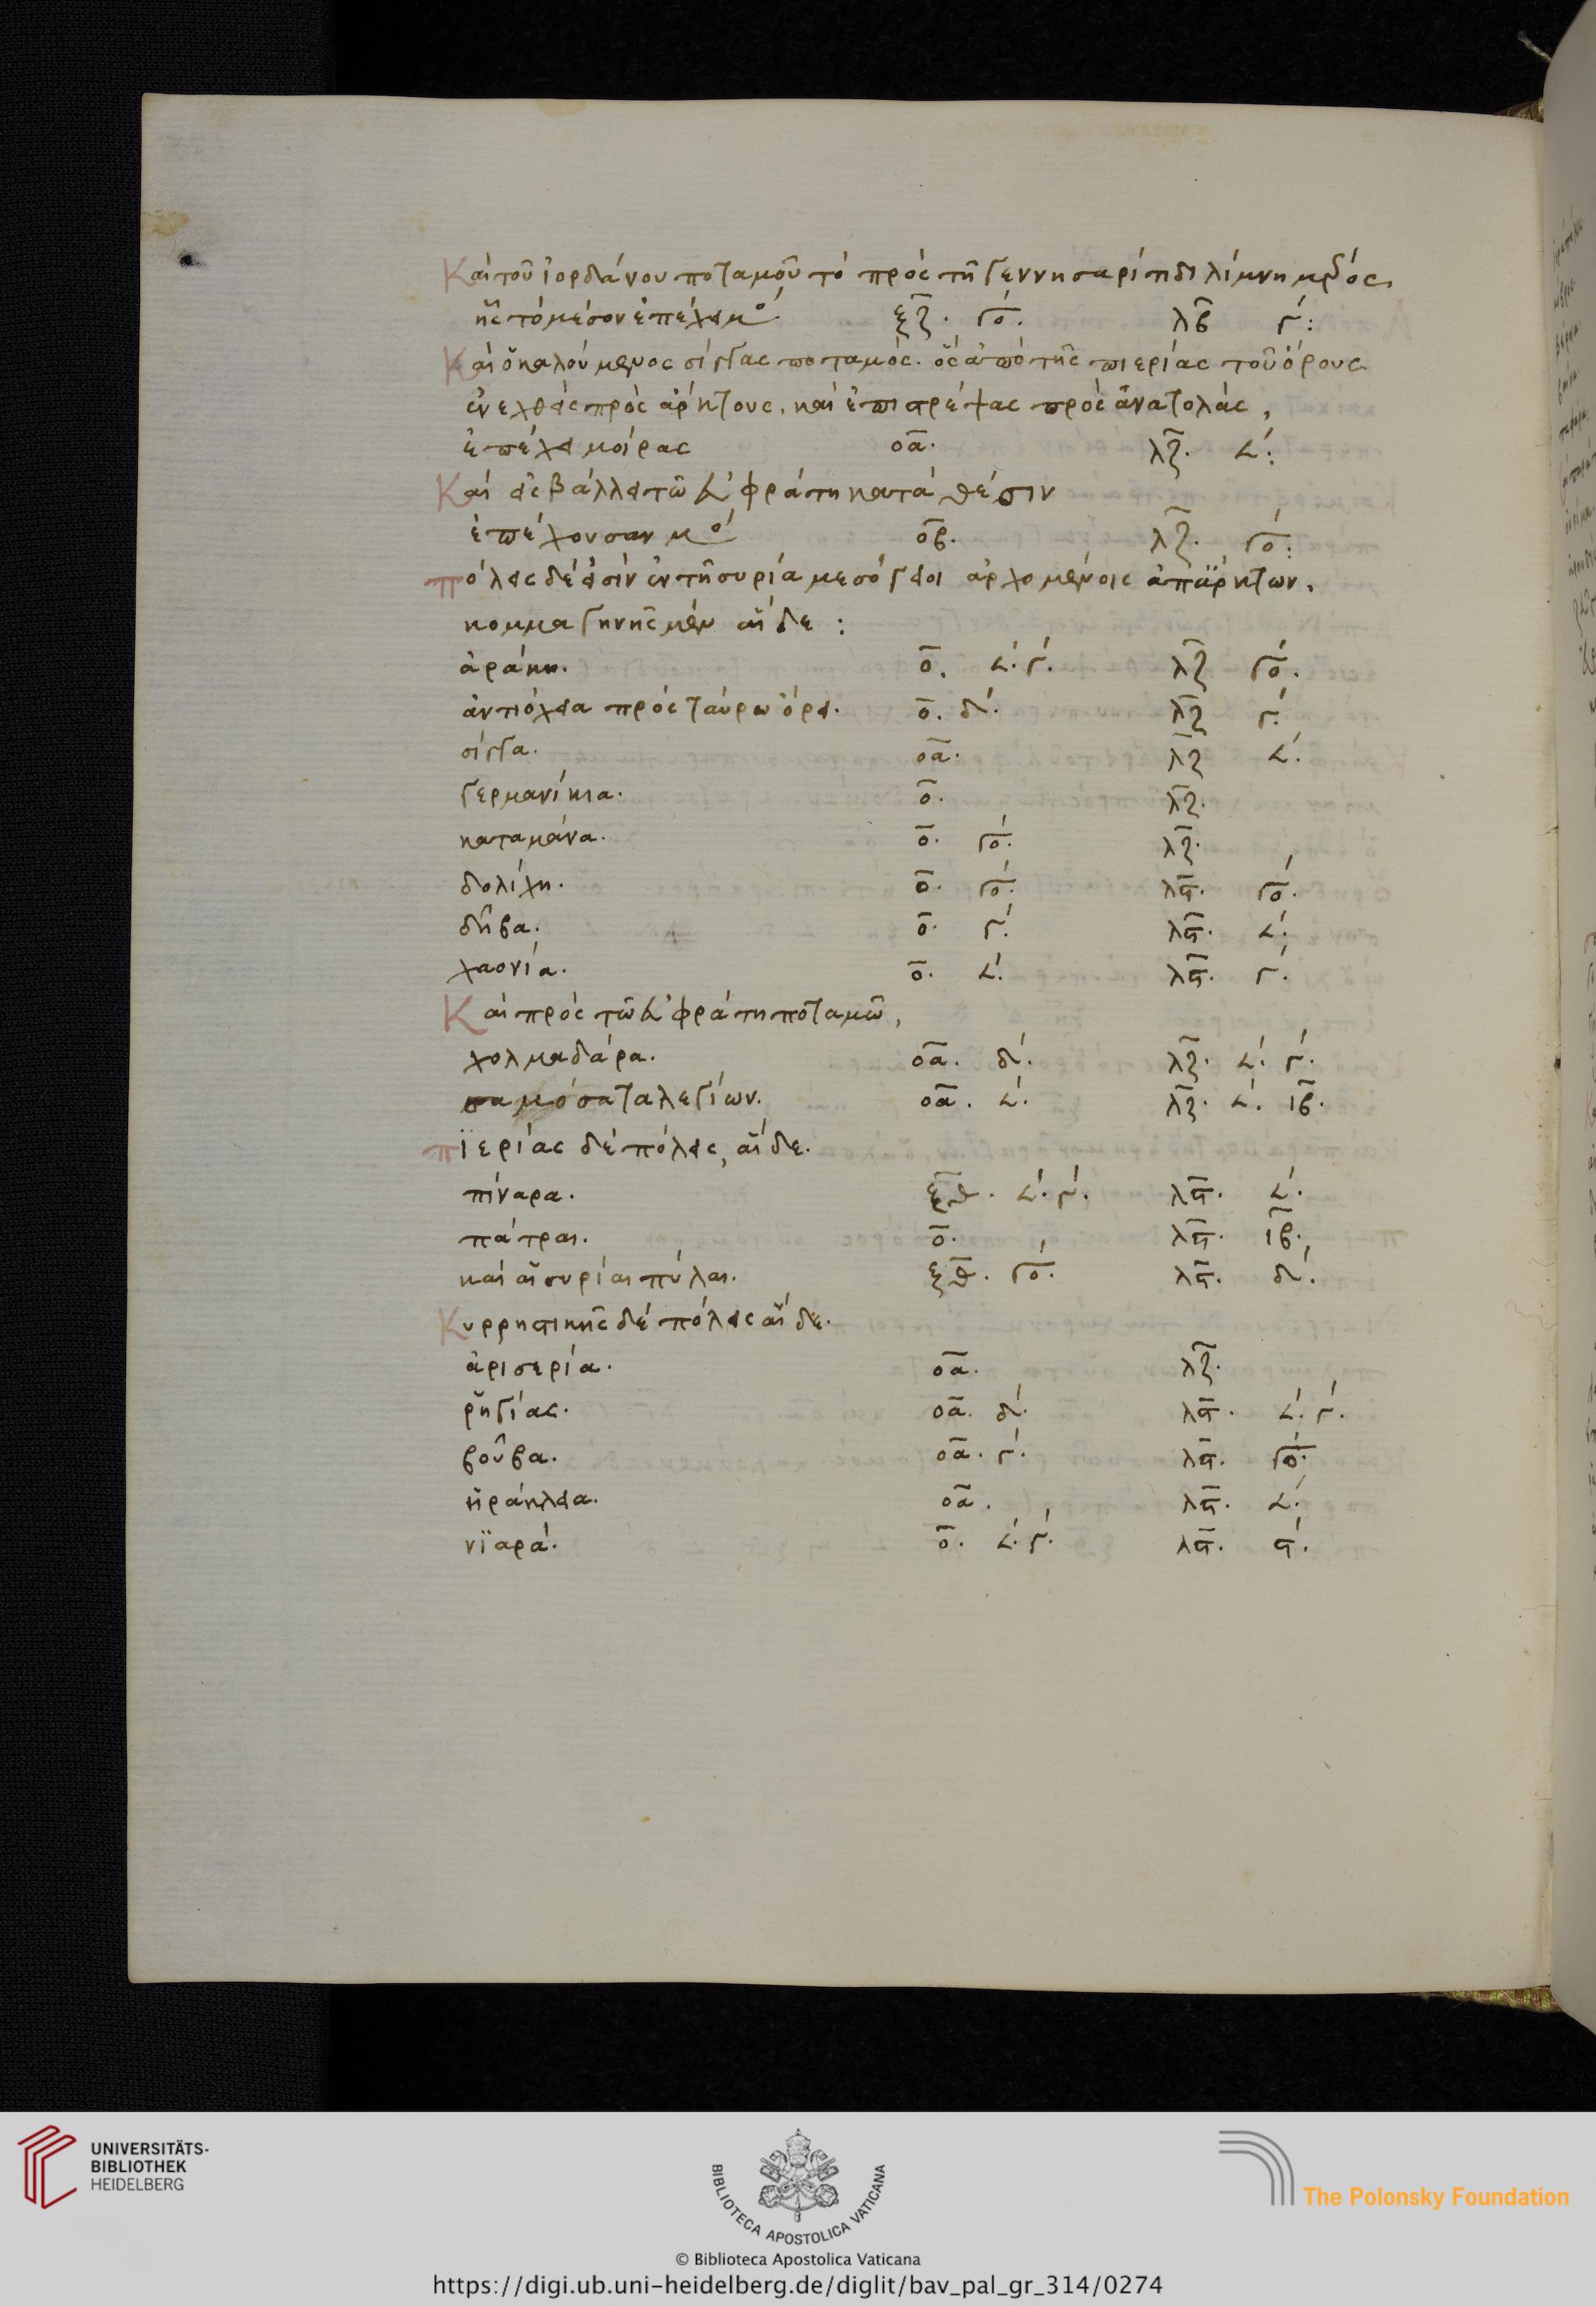 Καὶ τοῦ ἰορδάνου ποταμοῦ τὸ πρὸς τῆ γεννησαρίτιδι λίμνη μέρος,
ἧς τὸ μέσον ἐπέχει μο´ ξζ. γο´. λβ γ´:
Καὶ ὁ καλούμενος σίγγας ποταμός. ὃς ἀπὸ τῆς πιερίας τοῦ ὄρους
ἐνεχθεὶς πρὸς ἄρκτους. καὶ ἐπιστρέψας πρὸς ἀνατολάς,
ἐπέχει μοίρας οα. λζ. ∠´:
Καὶ εἰσβάλλει τῶ εὐφράτη κατὰ θέσιν
ἐπέχουσαν μο´ οβ. λζ. γο´:
πόλεις δέ εἰσὶν ἐν τῆ συρία μεσόγειοι ἀρχομένοις ἀπ' ἄρκτων.
κομμαγηνῆς μὲν αἵδε :
ἀράκη. ο. ∠´. γ´. λζ γο´.
ἀντιόχεια πρὸς ταύρω ὄρει. ο. δ´. λζ γ´.
σίγγα. οα. λζ ∠´.
γερμανίκια. ο. λζ.
καταμάνα. ο. γο´. λζ.
δολίχη. ο. γο´. λϛ. γο´.
δῆβα. ο. γ´. λϛ. ∠´.
χαονία. ο. ∠´. λϛ. γ´.
Καὶ πρὸς τῶ εὐφράτη ποταμῶ,
χολμαδάρα. οα. δ´. λζ. ∠´. γ´.
σαμόσατα λεγίων. οα. ∠´. λζ. ∠´. ιβ.
πϊερίας δὲ πόλεις, αἵδε.
πίναρα. ξθ. ∠´. γ´. λϛ. ∠´.
πάτραι. ο. λϛ. ιβ.
καὶ αἱ συρίαι πύλαι. ξθ. γο´. λϛ. δ´.
Κυρρηστικῆς δὲ πόλεις αἵδε.
ἀρισερία. οα. λζ.
ῥηγίας. οα. δ´. λϛ. ∠´. γ´.
βοῦβα. οα. γ´. λϛ. γο´.
ἡράκλεια. οα. λϛ. ∠´.
νϊαρά. ο. ∠´. γ´. λϛ. ϛ´.
UNIVERSITÄTS-
BIBLIOTHEK
HEIDELBERG
BIBLIOTECA APOSTOLICA VATICANA
The Polonsky Foundation
© Biblioteca Apostolica Vaticana
https://digi.ub.uni-heidelberg.de/diglit/bav_pal_gr_314/0274